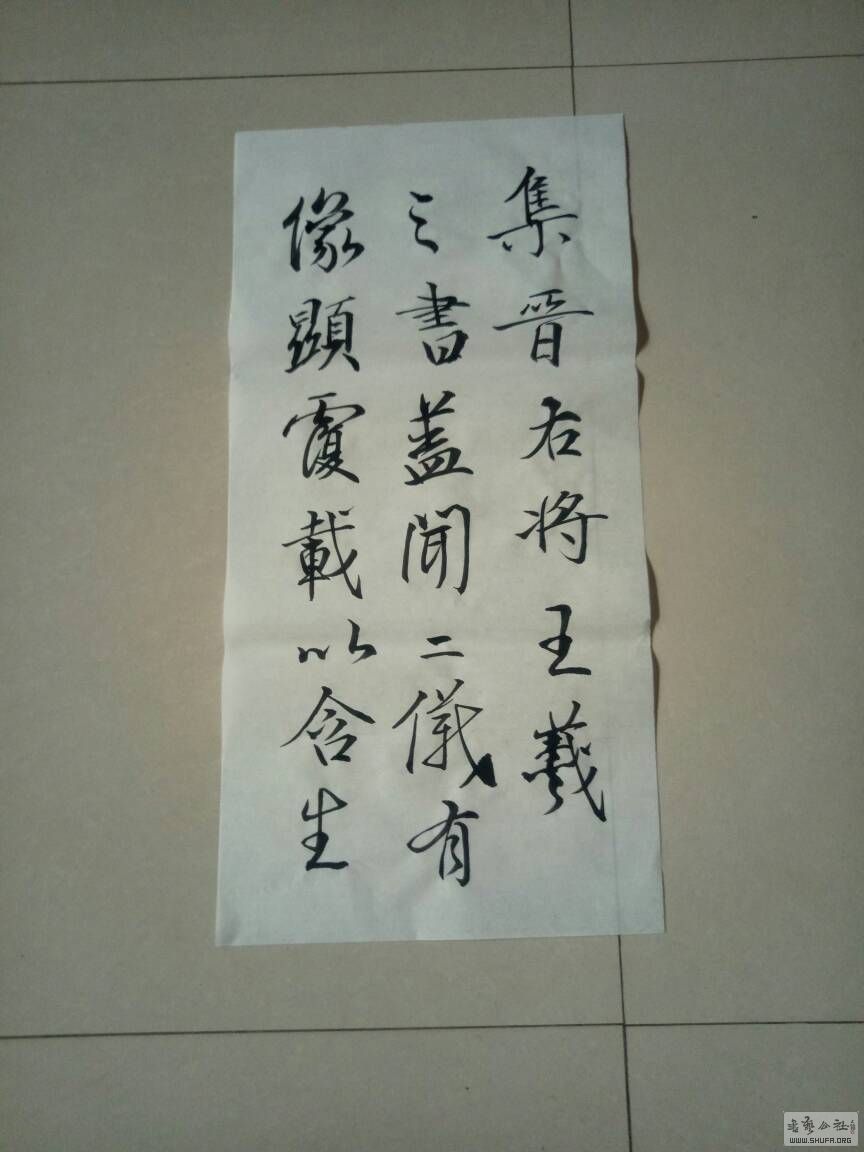 集晋右将王羲
之書蓋聞二儀有
像顯覆載以含生
书艺公社
WWW.SHUFA.ORG